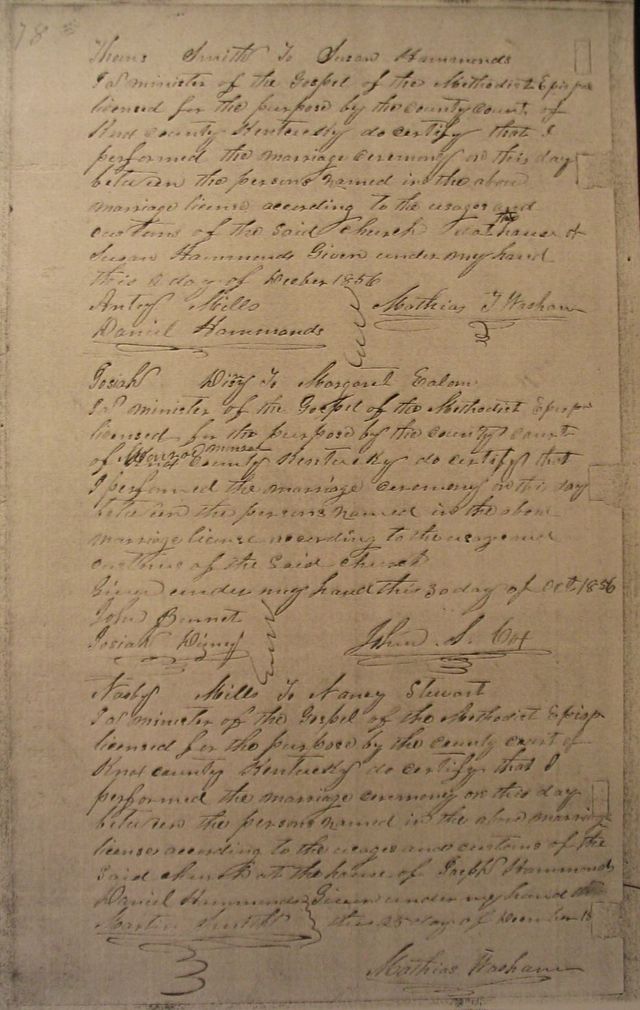 783
Thomas Smith To Susan Hammonds
I a minister of the Gospel of the Methodist Episp
licensed for the purpose by the county court of
Knox county Kentucky do certify that I
performed the marriage ceremony on this day
between the persons named in the above
marriage license according to the usages and
customs of the said church at the house of
Susan Hammonds Given under my hand
this day of Decber 1856
Mills Mathias
Daniel Hammonds
Josiah To Margaret
I a minister of the Gospel of the Methodist Episp
licensed for the purpose by the county court
of county Kentucky do certify that
I performed the marriage ceremony on this day
between the persons named in the above
marriage license according to the usage and
customs of the said church
Given under my hand this 30 day of Oct 1856
John Bennet
Josiah John S. Cox
Mills To Nancy Stewart
I a minister of the Gospel of the Methodist Episp
licensed for the purpose by the county court of
Knox county Kentucky do certify that I
performed the marriage ceremony on this day
between the persons named in the above marriage
license according to the usages and customs of the
said church at the house of Joseph Hammond
Daniel Hammonds Given under my hand
Martin this 25 day of December 18
Mathias